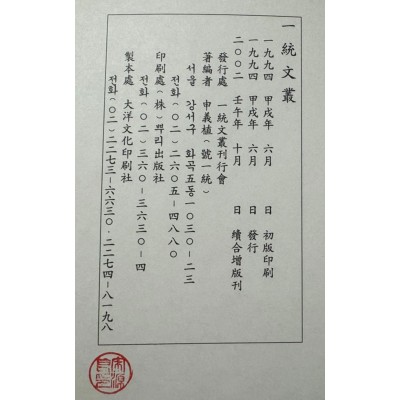 一統文叢
一九九四 甲戌年 六月 日 初版印刷
一九九四 甲戌年 六月 日 發行
二〇〇二 壬午年 十月 日 續合增版刊
發行處 一統文叢刊行會
著編者 申義植(號一統)
서울 강서구 화곡五동一〇三〇–二三
전화(〇二)二六〇五–四八八〇
印刷處(株)뿌리出版社
전화(〇二)三六〇–三六三〇–四
製本處 大洋文化印刷社
전화(〇二)二二七三–六六三〇·二二七四–八一九八